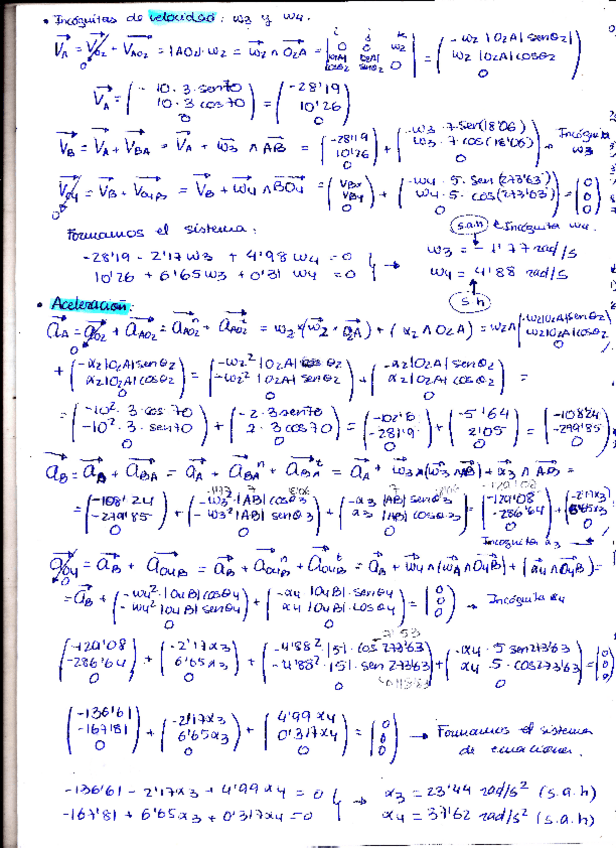 • Incógnitas de velocidad: ω3 y ω4.
V_A = V_O2 + V_AO2 = |AO2|·ω2 = ω2 ∧ O2A = | i j k ; 0 0 ω2 ; |O2A|cosθ2 |O2A|senθ2 0 | = ( -ω2 |O2A| senθ2 ; ω2 |O2A| cosθ2 ; 0 )
V_A = ( - 10·3·sen70 ; 10·3 cos70 ; 0 ) = ( -28'19 ; 10'26 ; 0 )
V_B = V_A + V_BA = V_A + ω3 ∧ AB = ( -28'19 ; 10'26 ; 0 ) + ( -ω3·7·sen(18'06) ; ω3·7 cos(18'06) ; 0 ) → Incógnita ω3
V_O4 = V_B + V_O4B = V_B + ω4 ∧ BO4 = ( VBx ; VBy ; 0 ) + ( -ω4·5·sen(273'63) ; ω4·5·cos(273'63) ; 0 ) = ( 0 ; 0 ; 0 )
Formamos el sistema: (s.a.h) Incógnita ω4.
-28'19 - 2'17ω3 + 4'98 ω4 = 0 → ω3 = -1'77 rad/s
10'26 + 6'65ω3 + 0'31 ω4 = 0 ω4 = 4'88 rad/s
(s h)
• Aceleración:
a_A = a_O2 + a_AO2 = a_AO2^n + a_AO2^t = ω2 × (ω2 · O2A) + (α2 ∧ O2A) = ω2 ∧ ( -ω2|O2A|senθ2 ; ω2|O2A|cosθ2 ; 0 )
+ ( -α2|O2A|senθ2 ; α2|O2A|cosθ2 ; 0 ) = ( -ω2² |O2A| cosθ2 ; -ω2² |O2A| senθ2 ; 0 ) + ( -α2|O2A| senθ2 ; α2|O2A| cosθ2 ; 0 ) =
= ( -10²·3·cos 70 ; -10²·3·sen70 ; 0 ) + ( -2·3sen70 ; 2·3cos70 ; 0 ) = ( -102'6 ; -281'9 ; 0 ) + ( -5'64 ; 2'05 ; 0 ) = ( -108'24 ; -279'85 ; 0 )
a_B = a_A + a_BA = a_A + a_BA^n + a_BA^t = a_A + ω3 ∧ (ω3 ∧ AB) + α3 ∧ AB =
= ( -108'24 ; -279'85 ; 0 ) + ( -ω3² |AB| cosθ3 ; -ω3² |AB| senθ3 ; 0 ) + ( -α3 |AB| senθ3 ; α3 |AB| cosθ3 ; 0 ) = ( -129'08 ; -286'64 ; 0 ) + ( -2'17α3 ; 6'65α3 ; 0 )
Incógnita α3
a_O4 = a_B + a_O4B = a_B + a_O4B^n + a_O4B^t = a_B + ω4 ∧ (ω4 ∧ O4B) + (α4 ∧ O4B) =
= a_B + ( -ω4²·|O4B| cosθ4 ; -ω4² |O4B| senθ4 ; 0 ) + ( -α4 |O4B|·senθ4 ; α4 |O4B|·cosθ4 ; 0 ) = ( 0 ; 0 ; 0 ) → Incógnita α4
( -129'08 ; -286'64 ; 0 ) + ( -2'17α3 ; 6'65α3 ; 0 ) + ( -4'88²·|5|·cos 273'63 ; -4'88²·|5|·sen 273'63 ; 0 ) + ( -α4·5 sen273'63 ; α4·5·cos273'63 ; 0 ) = ( 0 ; 0 ; 0 )
( -136'61 ; -167'81 ; 0 ) + ( -2'17α3 ; 6'65α3 ; 0 ) + ( 4'99 α4 ; 0'317α4 ; 0 ) = ( 0 ; 0 ; 0 ) → Formamos el sistema
de ecuaciones.
-136'61 - 2'17α3 + 4'99α4 = 0 → α3 = 23'44 rad/s² (s.a.h)
-167'81 + 6'65α3 + 0'317α4 = 0 α4 = 37'62 rad/s² (s.a.h)